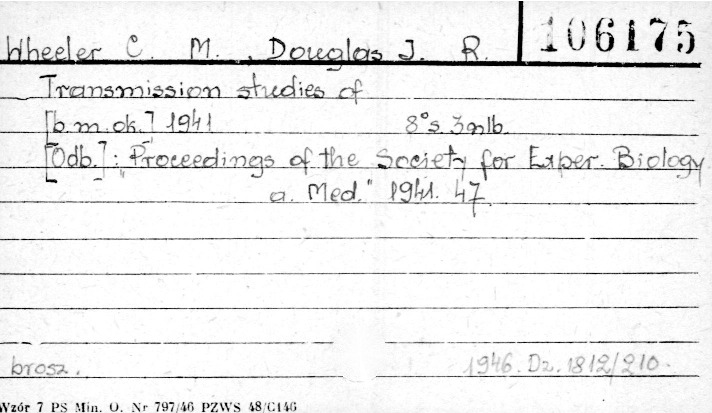 Wheeler C. M., Douglas J. R. 106175
Transmission studies of
[b.m.ok.] 1941 8° s. 3 nlb.
[Odb.]: "Proceedings of the Society for Exper. Biology
a. Med." 1941. 47.
brosz. 1946. Dz. 1812/210.
Wzór 7 PS Min. O. Nr 797/46 PZWS 48/C146